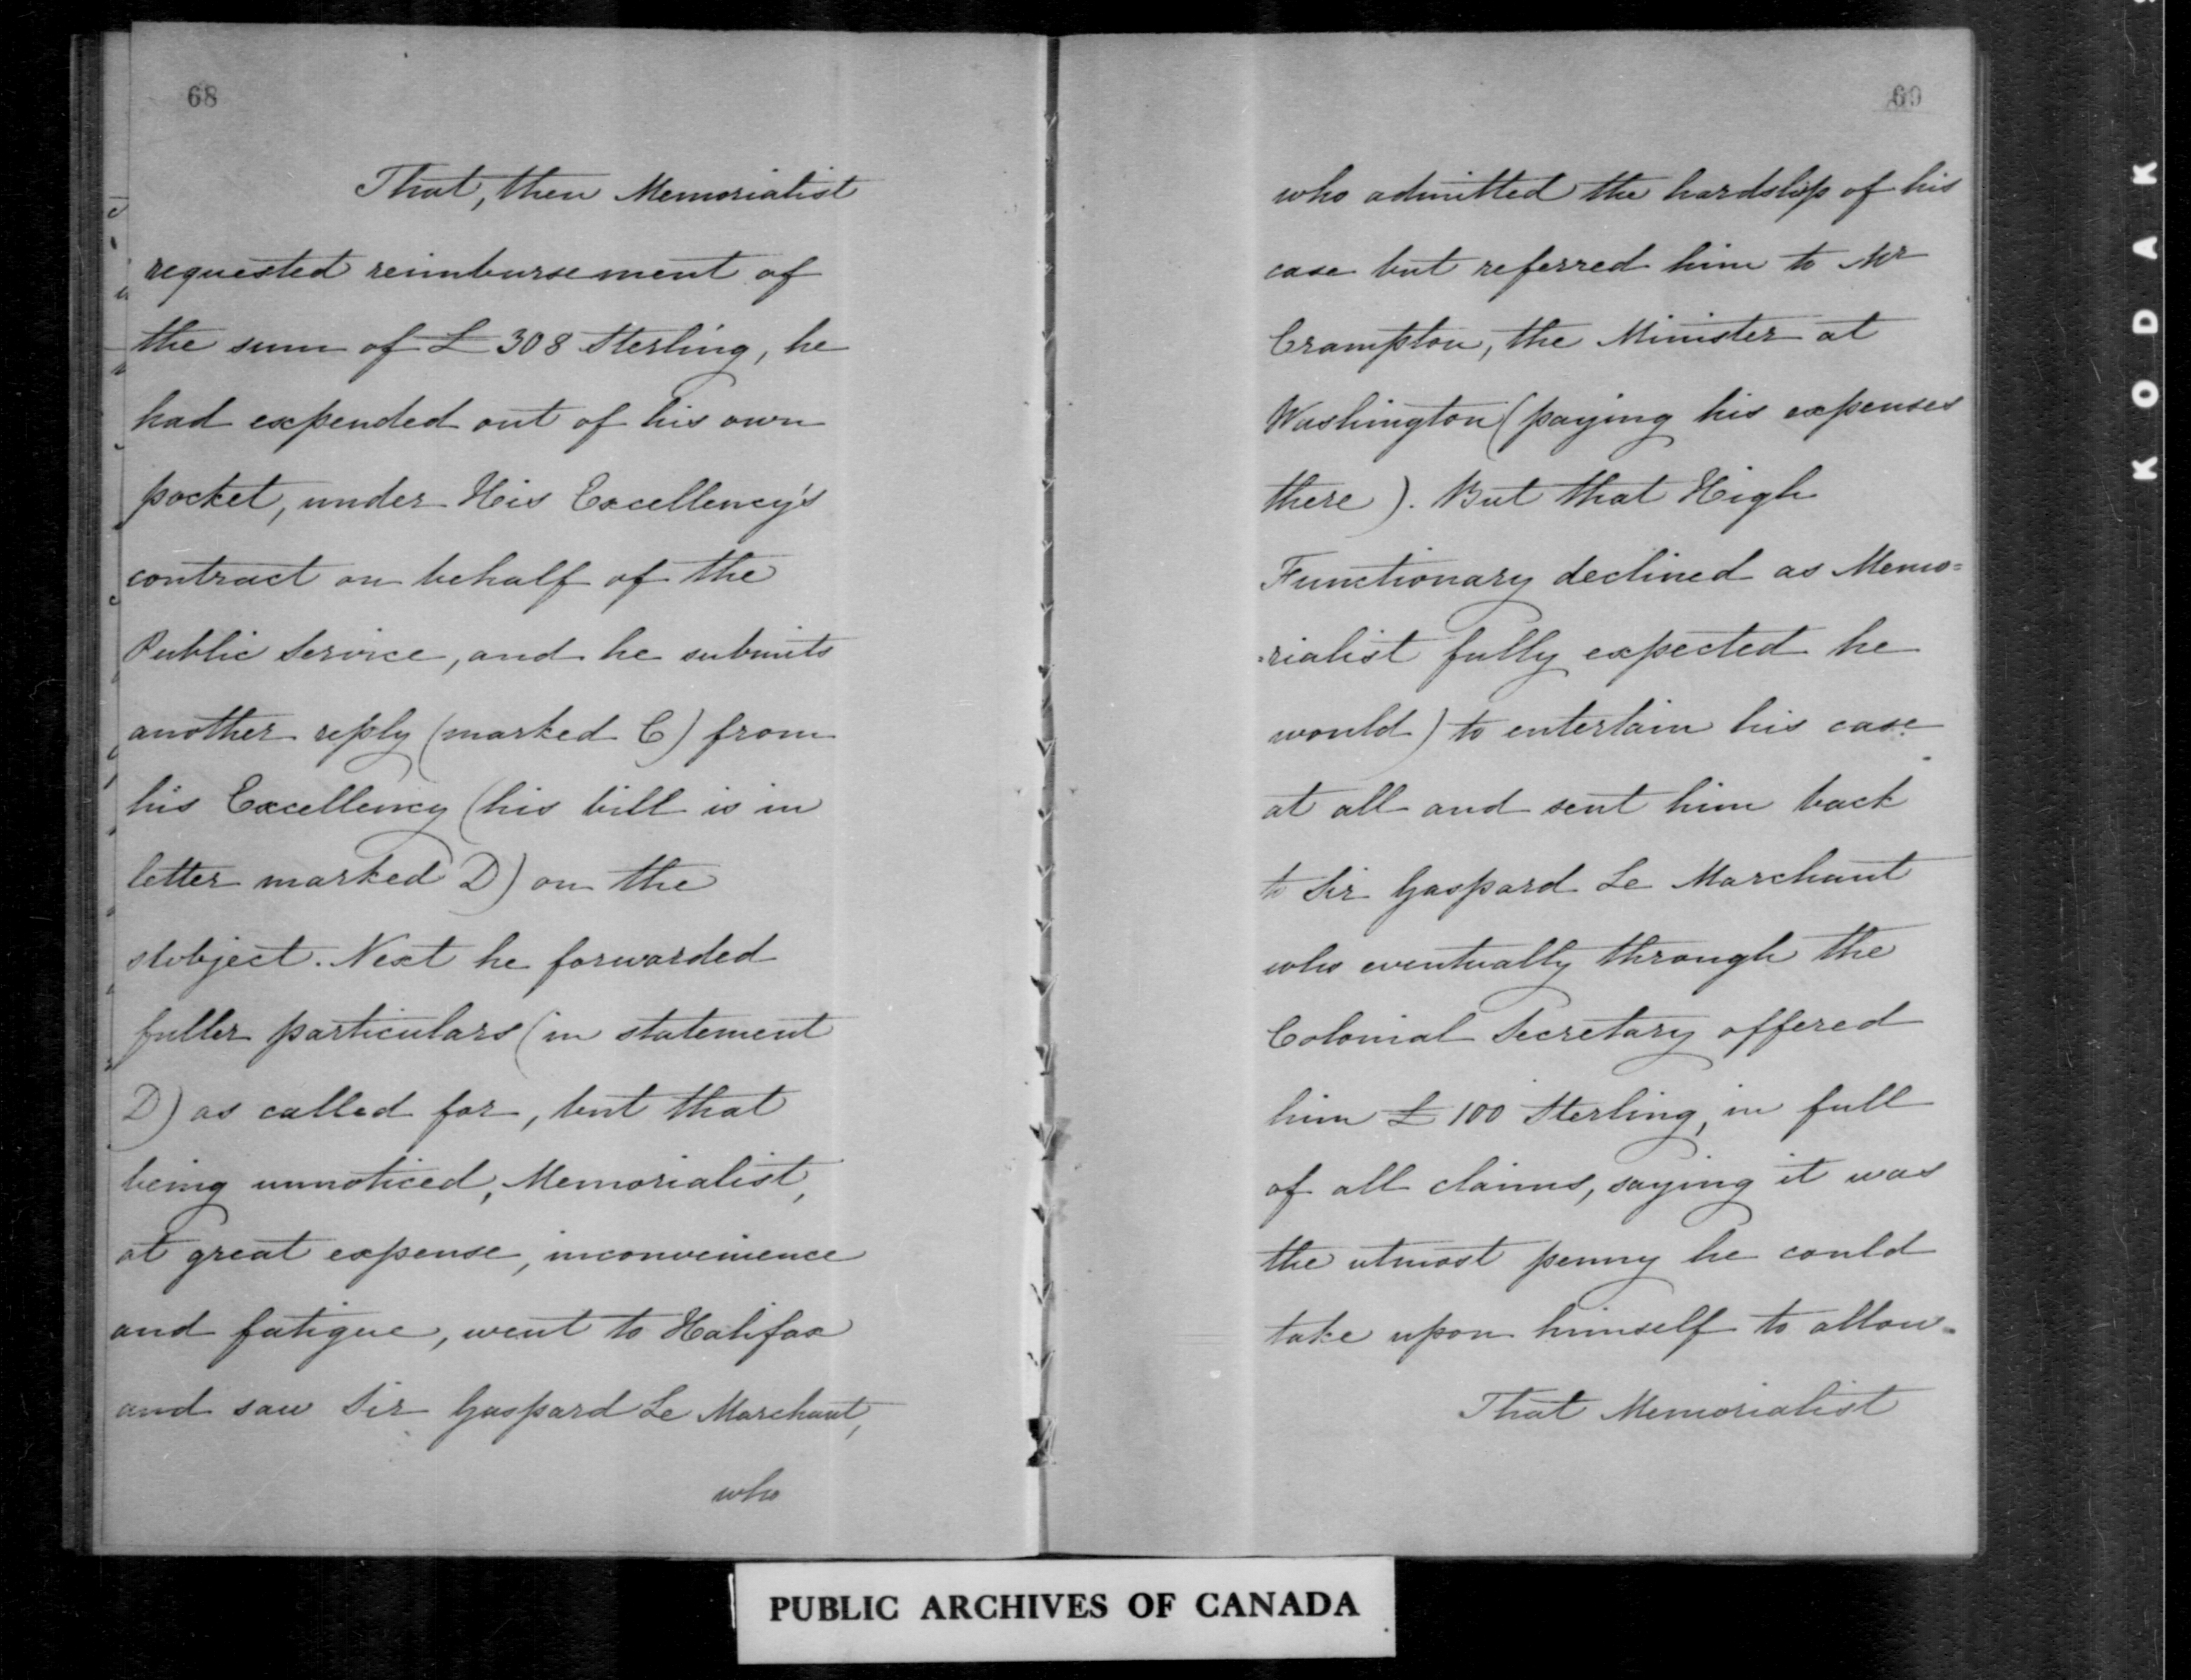 68
That, then Memorialist
requested reimbursement of
the sum of £ 308 Sterling, he
had expended out of his own
pocket, under His Excellency's
contract on behalf of the
Public Service, and he submits
another reply (marked C) from
his Excellency (his bill is in
letter marked D) on the
subject. Next he forwarded
fuller particulars (in statement
D) as called for, but that
being unnoticed, Memorialist,
at great expense, inconvenience
and fatigue, went to Halifax
and saw Sir Gaspard Le Marchant,
who
69
who admitted the hardship of his
case but referred him to Mr
Crampton, the Minister at
Washington (paying his expenses
there). But that High
Functionary declined as Memo=
=rialist fully expected he
would) to entertain his case
at all and sent him back
to Sir Gaspard Le Marchant
who eventually through the
Colonial Secretary offered
him £ 100 Sterling, in full
of all claims, saying it was
the utmost penny he could
take upon himself to allow.
That Memorialist
PUBLIC ARCHIVES OF CANADA
KODAK